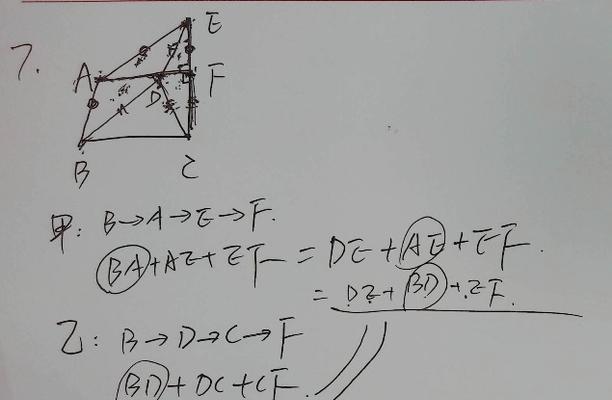 7.
E
A
F
D
B
C
甲: B→A→E→F.
BA+AE+EF=DE+AE+EF.
=DE+BD+EF.
乙: B→D→C→F
BD+DC+CF.